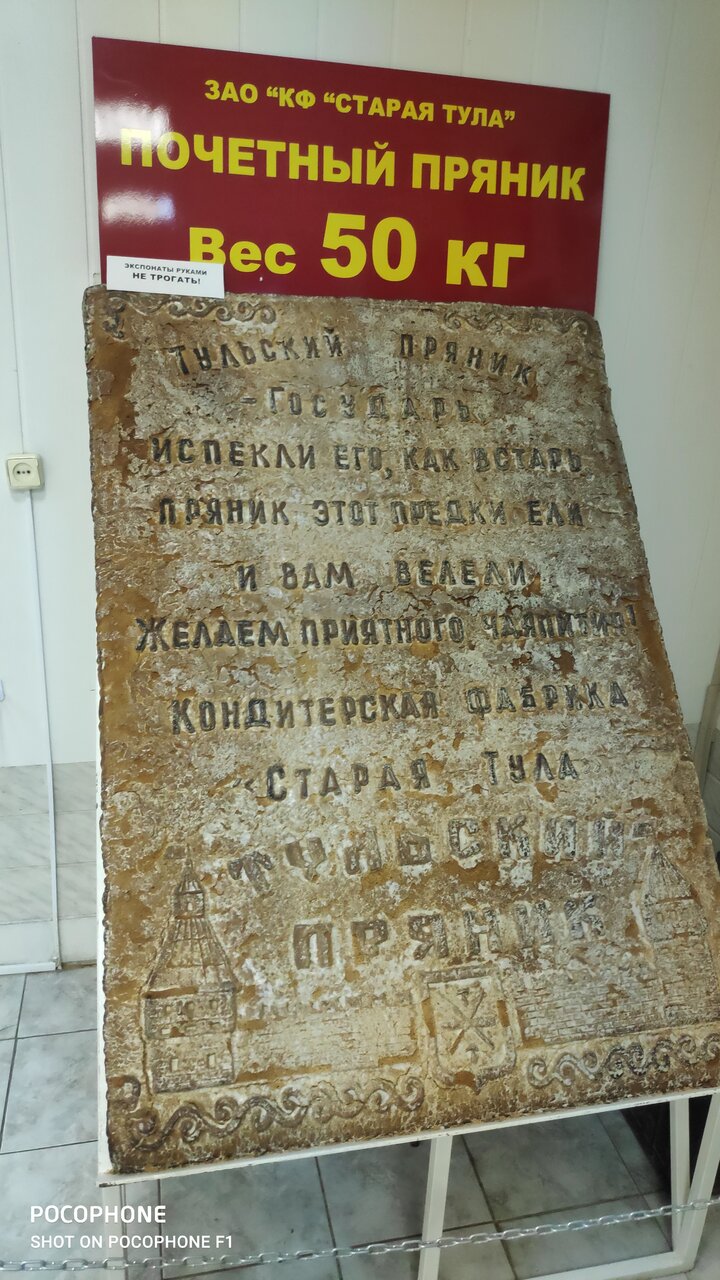 ЗАО “КФ “СТАРАЯ ТУЛА”
ПОЧЕТНЫЙ ПРЯНИК
Вес 50 кг
ЭКСПОНАТЫ РУКАМИ
НЕ ТРОГАТЬ!
ТУЛЬСКИЙ ПРЯНИК
-ГОСУДАРЬ
ИСПЕКЛИ ЕГО, КАК ВСТАРЬ
ПРЯНИК ЭТОТ ПРЕДКИ ЕЛИ
И ВАМ ВЕЛЕЛИ
ЖЕЛАЕМ ПРИЯТНОГО ЧАЯПИТИЯ!
КОНДИТЕРСКАЯ ФАБРИКА
«СТАРАЯ ТУЛА
ТУЛЬСКИЙ
ПРЯНИК
POCOPHONE
SHOT ON POCOPHONE F1